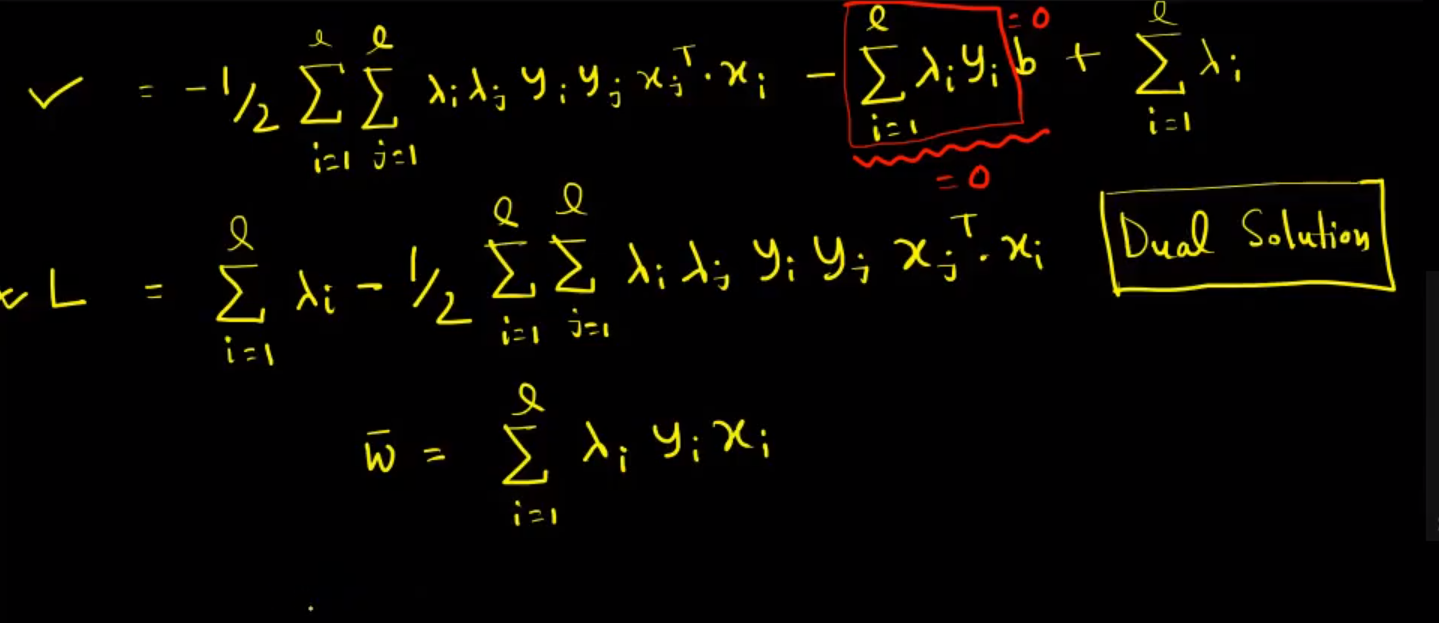 ✓ = -1/2 ∑_{i=1}^{l} ∑_{j=1}^{l} λ_i λ_j y_i y_j x_j^T · x_i - ∑_{i=1}^{l} λ_i y_i b + ∑_{i=1}^{l} λ_i
= 0
= 0
L = ∑_{i=1}^{l} λ_i - 1/2 ∑_{i=1}^{l} ∑_{j=1}^{l} λ_i λ_j y_i y_j x_j^T · x_i
Dual Solution
w̄ = ∑_{i=1}^{l} λ_i y_i x_i